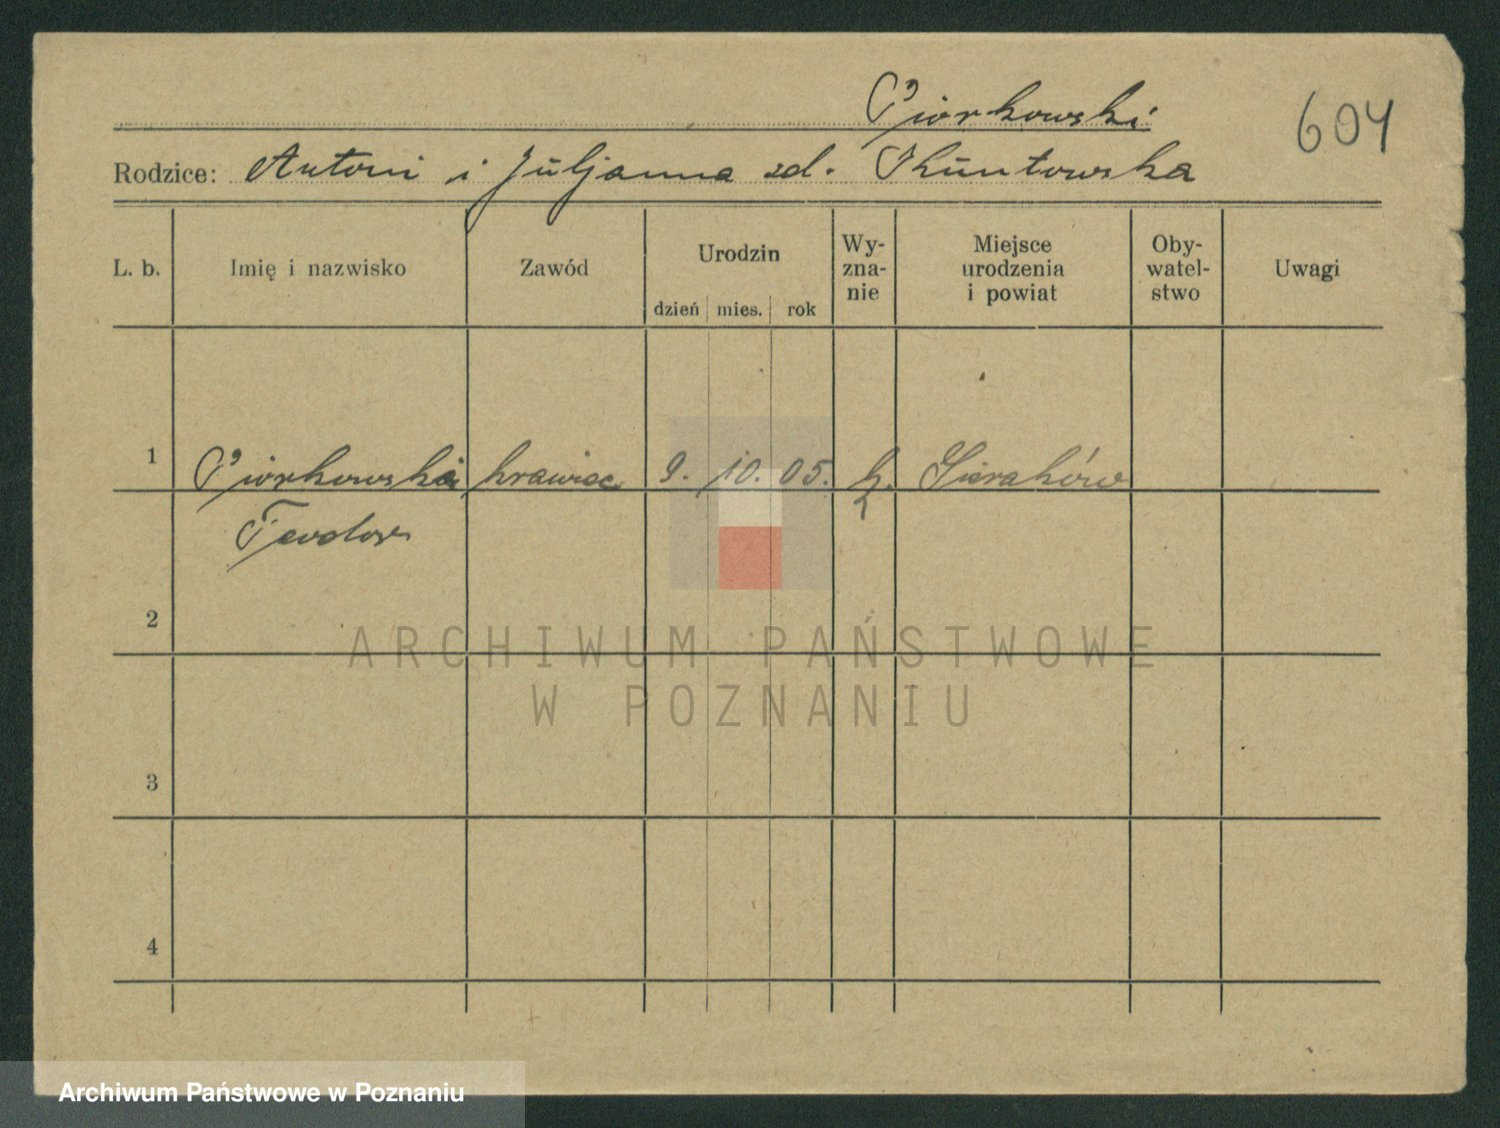 Piorkowski
604
Rodzice: Antoni i Juljanna zd. Kuntowska
L. b. Imię i nazwisko Zawód Urodzin dzień mies. rok Wy-zna-nie Miejsce urodzenia i powiat Oby-watel-stwo Uwagi
1 Piorkowski krawiec 9. 10. 05. k. Sieraków
Teodor
2
3
4
ARCHIWUM PAŃSTWOWE
W POZNANIU
Archiwum Państwowe w Poznaniu